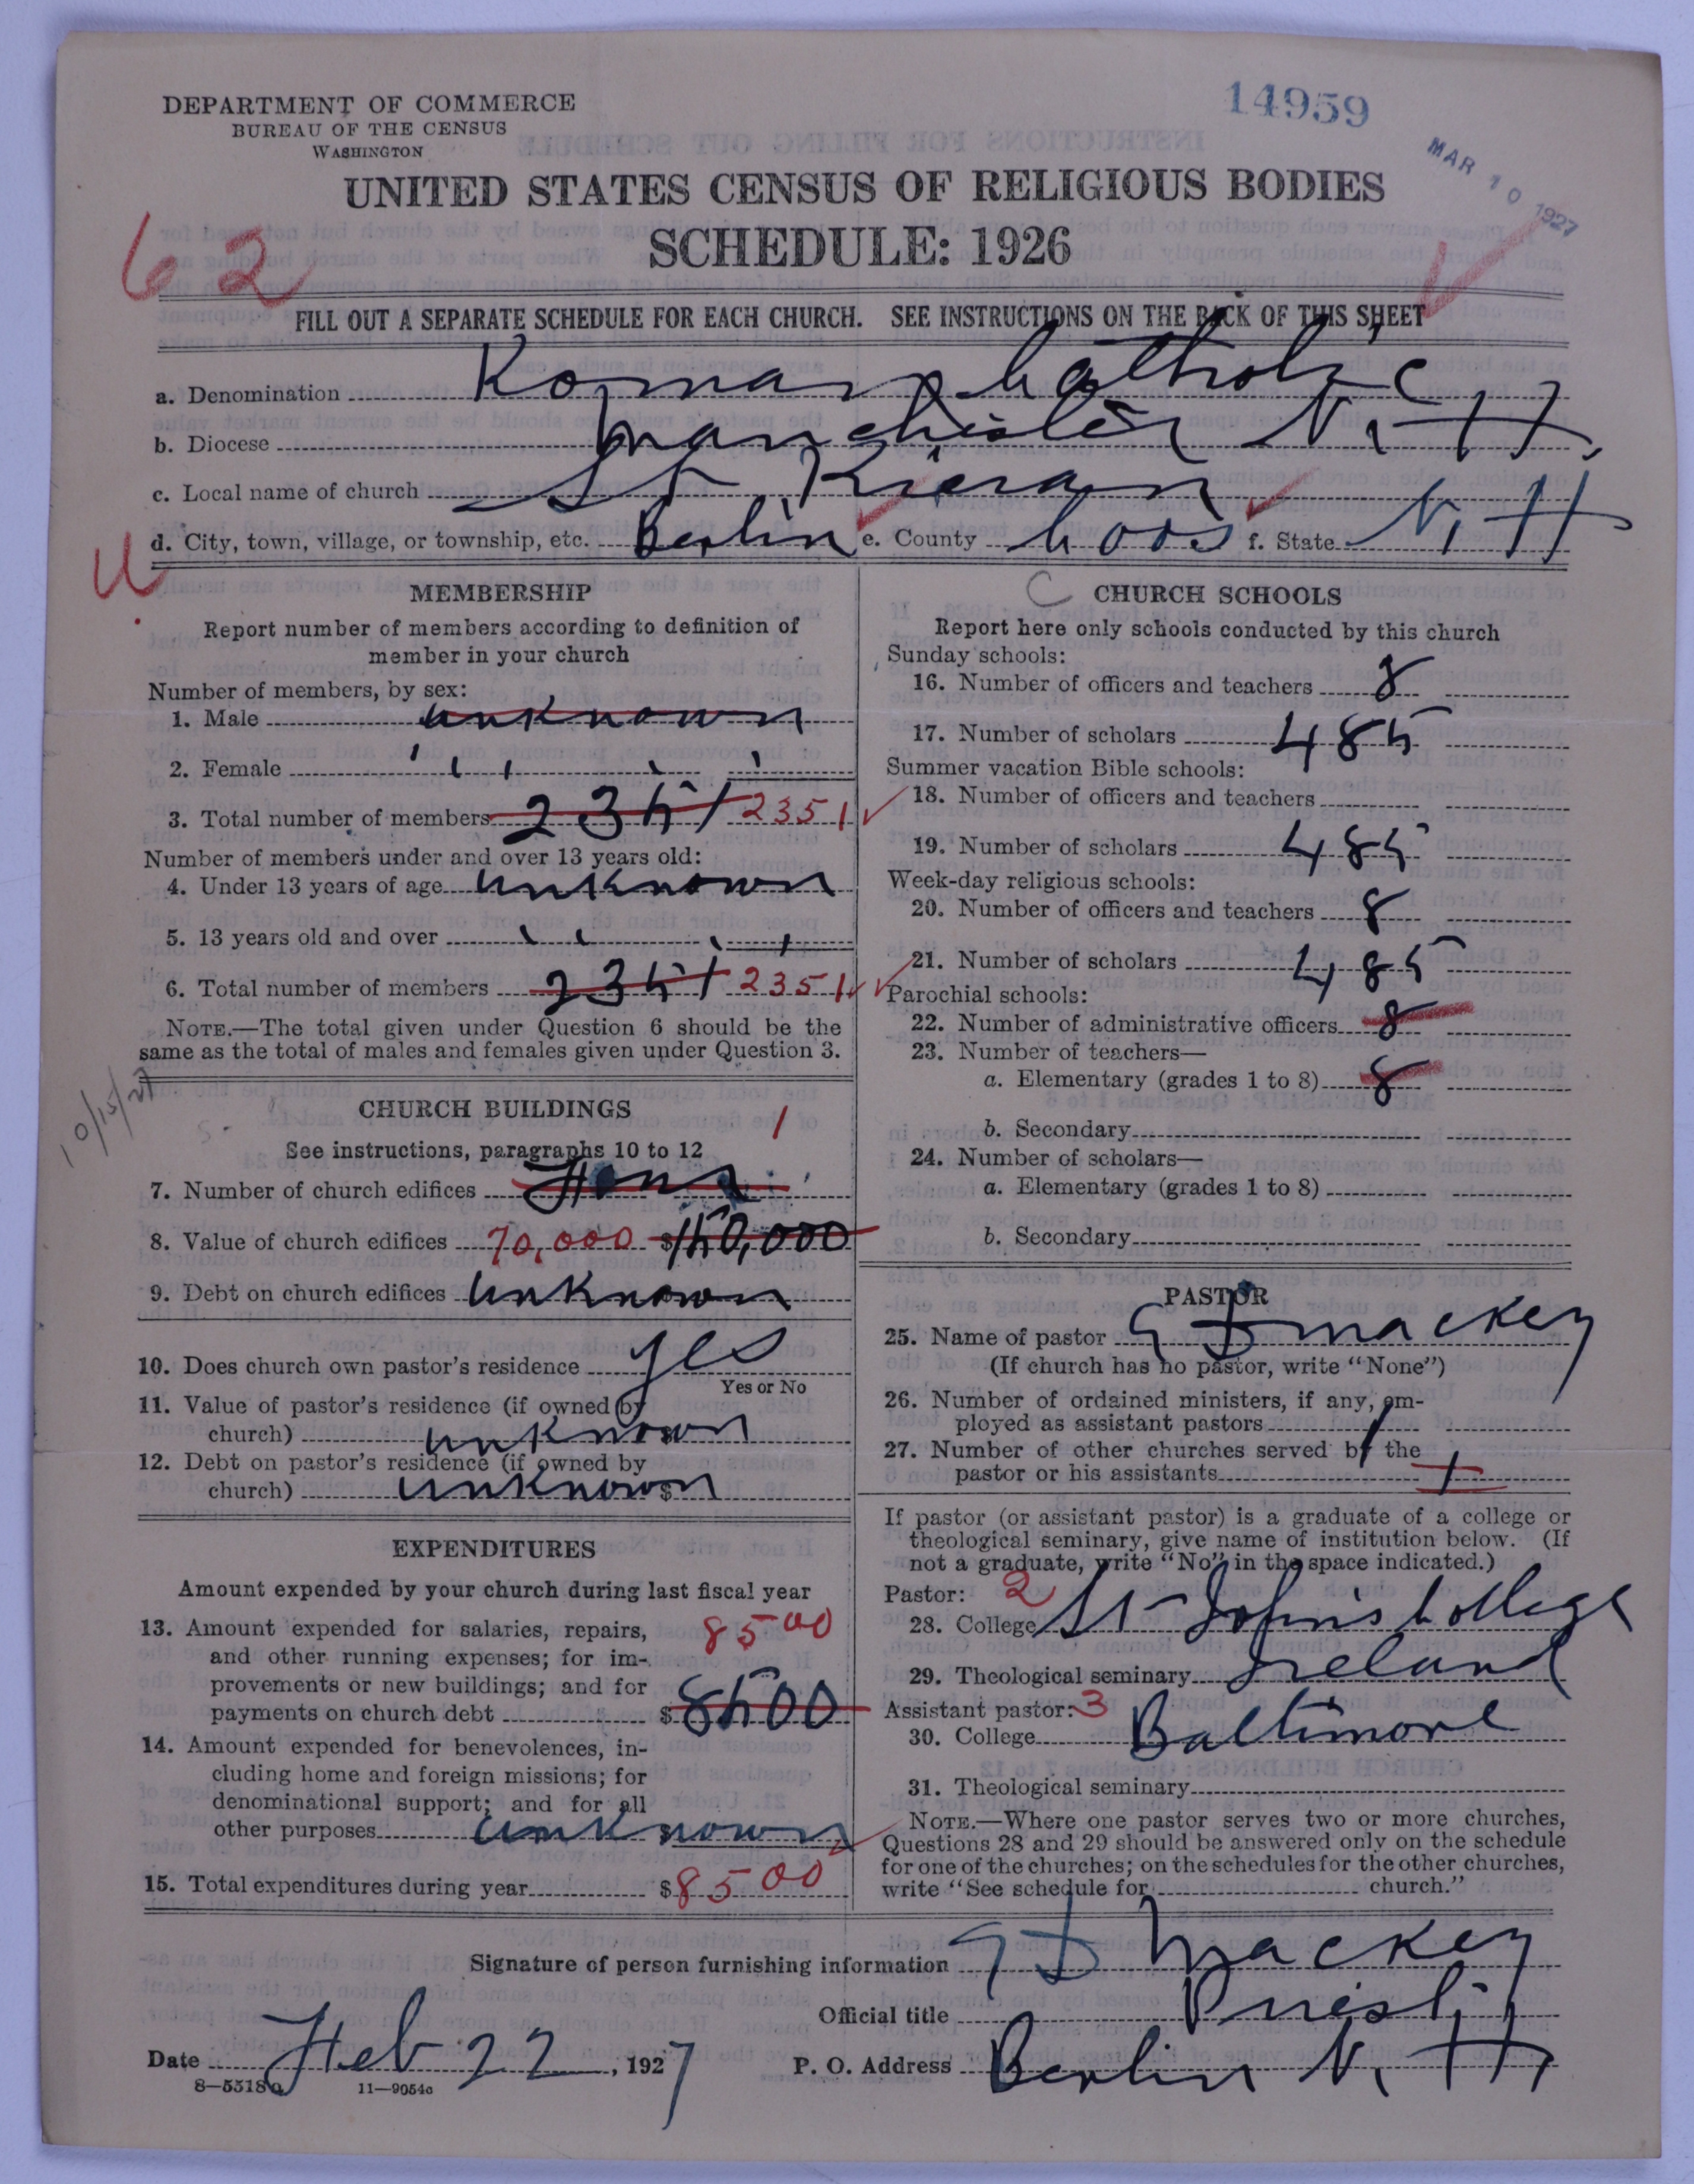 14959
DEPARTMENT OF COMMERCE
BUREAU OF THE CENSUS
WASHINGTON
MAR 10 1927
UNITED STATES CENSUS OF RELIGIOUS BODIES
SCHEDULE: 1926
62
FILL OUT A SEPARATE SCHEDULE FOR EACH CHURCH. SEE INSTRUCTIONS ON THE BACK OF THIS SHEET
a. Denomination Roman Catholic
b. Diocese Manchester N. H.
c. Local name of church St Kieran
d. City, town, village, or township, etc. Berlin e. County Coos f. State N. H
U
MEMBERSHIP
Report number of members according to definition of
member in your church
Number of members, by sex:
1. Male unknown
2. Female " "
3. Total number of members 2351 2351
Number of members under and over 13 years old:
4. Under 13 years of age unknown
5. 13 years old and over " "
6. Total number of members 2351 2351
NOTE.—The total given under Question 6 should be the
same as the total of males and females given under Question 3.
10/15/27
CHURCH BUILDINGS
See instructions, paragraphs 10 to 12
1
7. Number of church edifices
8. Value of church edifices 70,000 $150,000
9. Debt on church edifices unknown
10. Does church own pastor's residence yes
Yes or No
11. Value of pastor's residence (if owned by
church) unknown
12. Debt on pastor's residence (if owned by
church) unknown $
EXPENDITURES
Amount expended by your church during last fiscal year
13. Amount expended for salaries, repairs, 8500
and other running expenses; for im-
provements or new buildings; and for
payments on church debt $8500
14. Amount expended for benevolences, in-
cluding home and foreign missions; for
denominational support; and for all
other purposes unknown
15. Total expenditures during year $8500
C CHURCH SCHOOLS
Report here only schools conducted by this church
Sunday schools:
16. Number of officers and teachers 8
17. Number of scholars 485
Summer vacation Bible schools:
18. Number of officers and teachers
19. Number of scholars 485
Week-day religious schools:
20. Number of officers and teachers 8
21. Number of scholars 485
Parochial schools:
22. Number of administrative officers 8
23. Number of teachers—
a. Elementary (grades 1 to 8) 8
b. Secondary
24. Number of scholars—
a. Elementary (grades 1 to 8)
b. Secondary
PASTOR
25. Name of pastor E D Mackey
(If church has no pastor, write "None")
26. Number of ordained ministers, if any, em-
ployed as assistant pastors 1
27. Number of other churches served by the
pastor or his assistants 1
If pastor (or assistant pastor) is a graduate of a college or
theological seminary, give name of institution below. (If
not a graduate, write "No" in the space indicated.)
Pastor: 2
28. College St Johns College
29. Theological seminary Ireland
Assistant pastor: 3
30. College Baltimore
31. Theological seminary
NOTE.—Where one pastor serves two or more churches,
Questions 28 and 29 should be answered only on the schedule
for one of the churches; on the schedules for the other churches,
write "See schedule for church."
Signature of person furnishing information E D Mackey
Official title Priest
Date Feb 22, 1927 P. O. Address Berlin N. H.
11—9054a